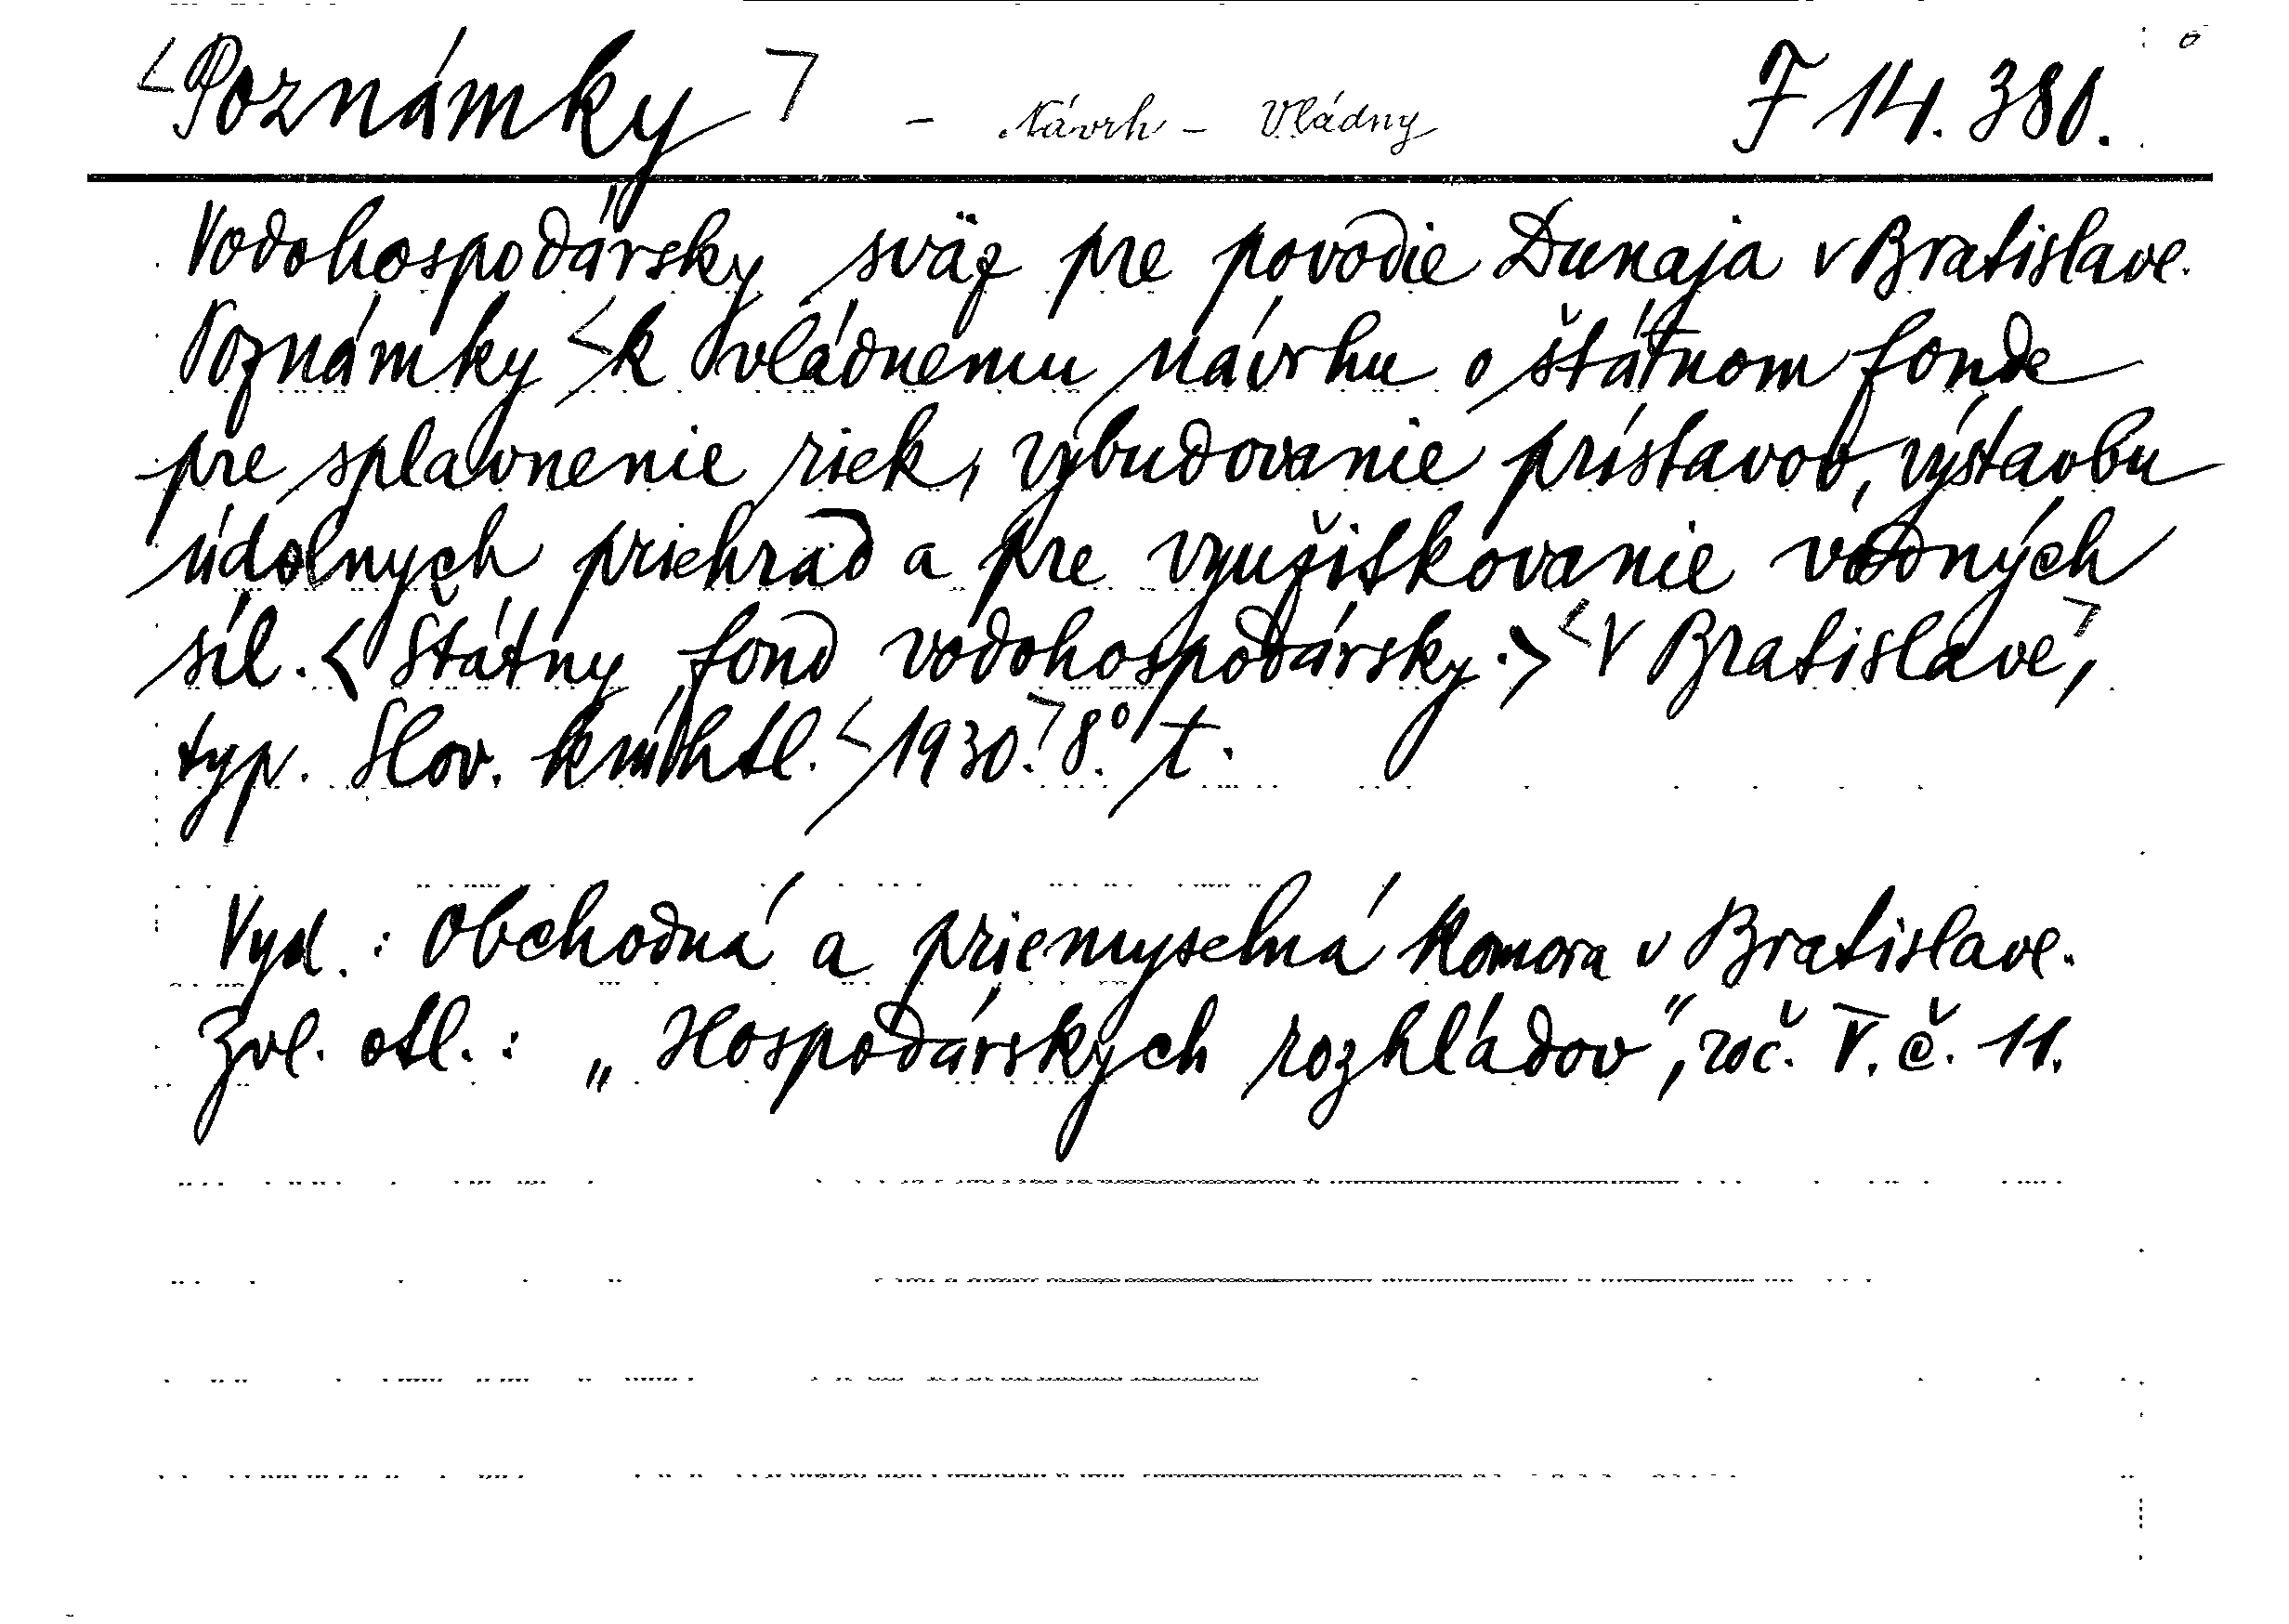 <Poznámky> - Návrh - Vládny F 14.380.
Vodohospodársky sväz pre povodie Dunaja v Bratislave.
Poznámky <k vládnemu návrhu o štátnom fonde
pre splavnenie riek, vybudovanie prístavov, výstavbu
údolných priehrad a pre využitkovanie vodných
síl. <Štátny fond vodohospodársky.> <V Bratislave>,
typ. Slov. kníhtl. <1930.> 8.° t.
Vyd.: Obchodná a priemyselná komora v Bratislave.
Zvl. otl.: „Hospodárskych rozhľadov", roč. V. č. 11.